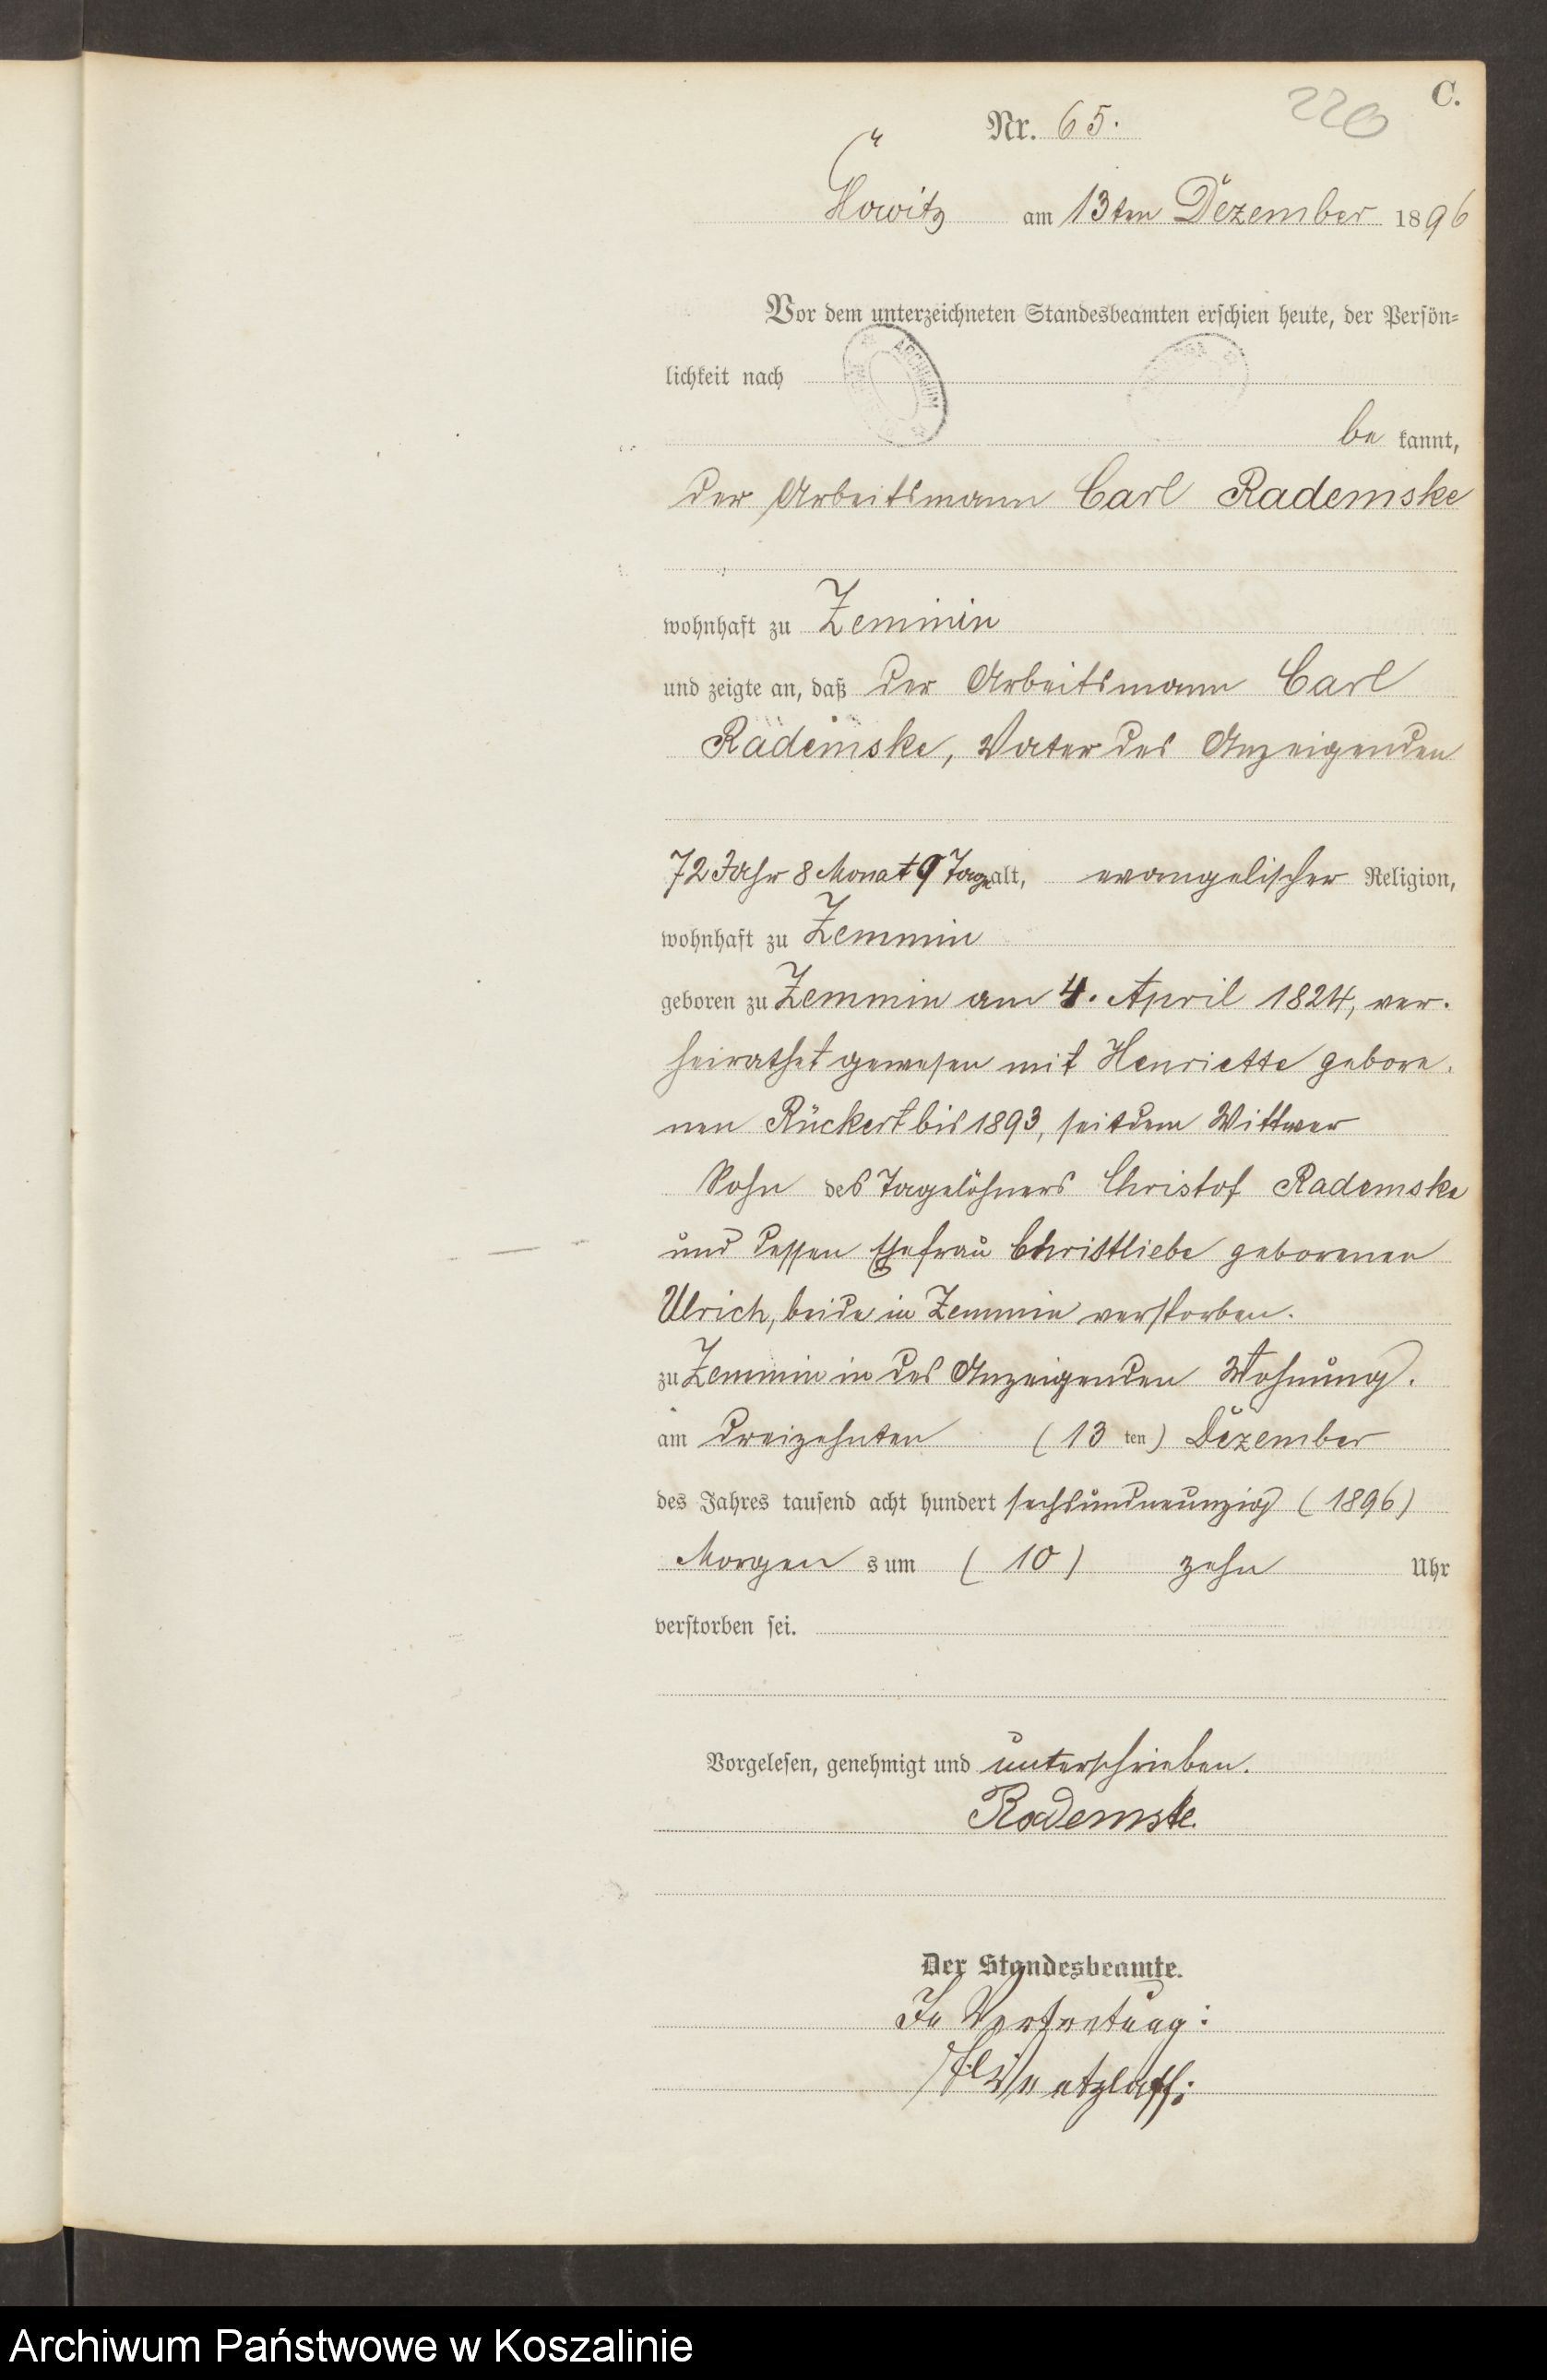 C.
220
Nr. 65.
am 13ten Dezember 1896
Vor dem unterzeichneten Standesbeamten erschien heute, der Persön=
lichkeit nach
ARCHIWUM
be kannt,
der Arbeitsmann Carl Rademske
wohnhaft zu Zemmin
und zeigte an, daß der Arbeitsmann Carl
Rademske, Vater des Anzeigenden
72 Jahr 8 Monat 9 Tage alt, evangelischer Religion,
wohnhaft zu Zemmin
geboren zu Zemmin am 4. April 1824, ver.
heirathet gewesen mit Henriette gebore.
nen Rückert bis 1893, seitdem Wittwer
Sohn des Tagelöhners Christof Rademske
und dessen Ehefrau Christliebe geborenen
Ulrich, beide in Zemmin verstorben.
zu Zemmin in des Anzeigenden Wohnung.
am dreizehnten (13 ten) Dezember
des Jahres tausend acht hundert sechsundneunzig (1896)
Morgen s um (10) zehn Uhr
verstorben sei.
Vorgelesen, genehmigt und unterschrieben.
Rademske.
Der Standesbeamte.
In Vertretung:
Archiwum Państwowe w Koszalinie